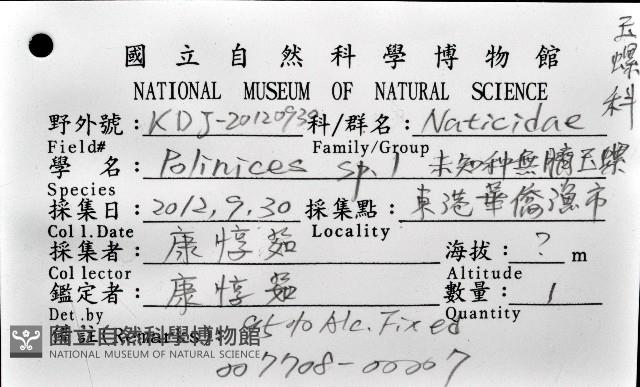 玉螺科
國立自然科學博物館
NATIONAL MUSEUM OF NATURAL SCIENCE
野外號：KDJ-20120930 科/群名：Naticidae
Field# Family/Group
學 名：Polinices sp.1 未知种無臍玉螺
Species
採集日：2012.9.30 採集點：東港華僑漁市
Coll.Date Locality
採集者：康惇茹 海拔：? m
Collector Altitude
鑑定者：康惇茹 數量：1
Det.by Quantity
備註/Remarks 95% Alc. Fixed
國立自然科學博物館
NATIONAL MUSEUM OF NATURAL SCIENCE
007708-00007